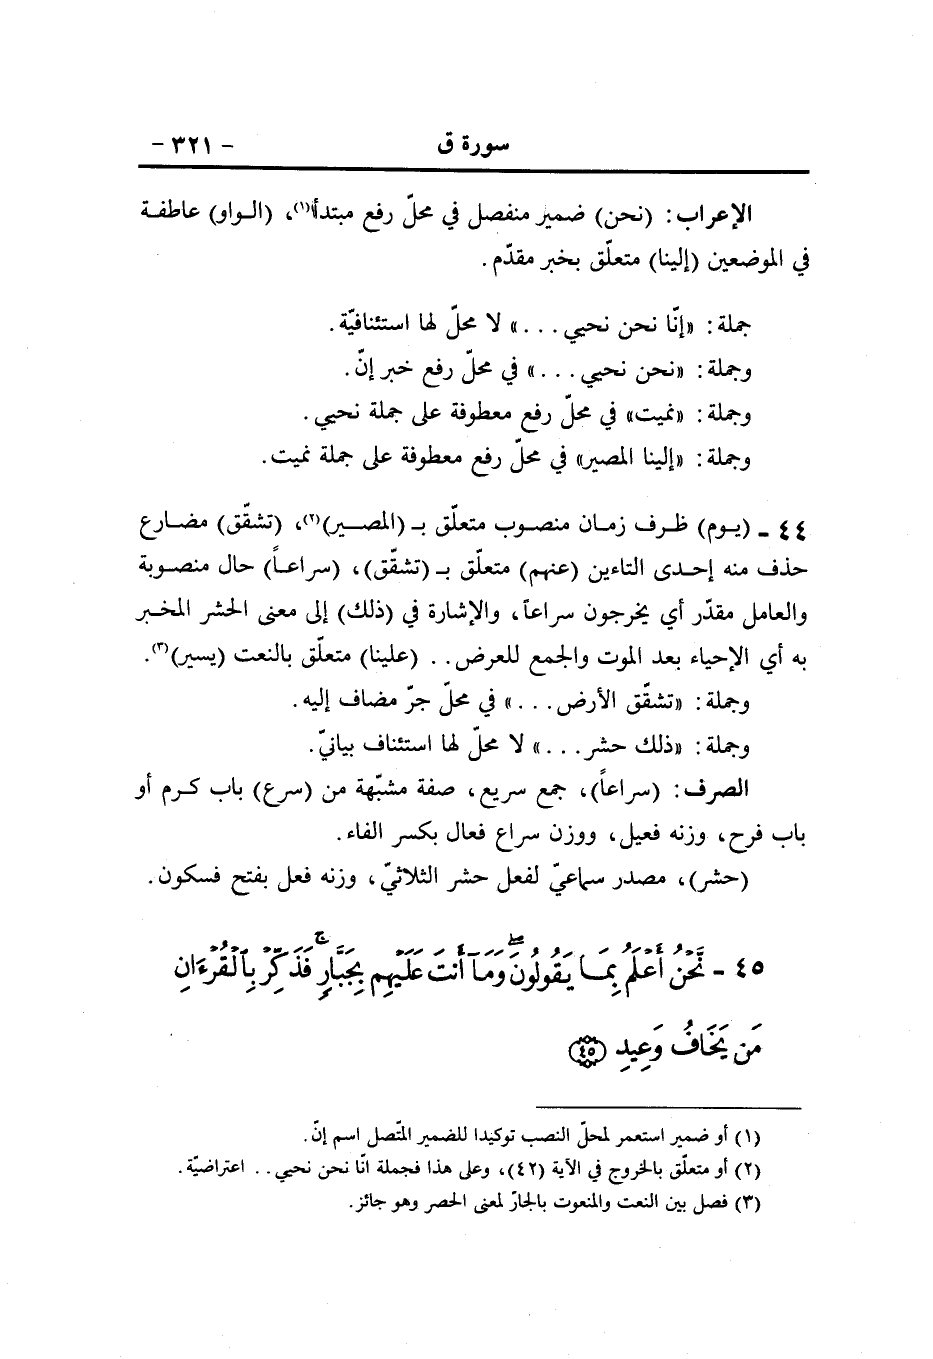 سورة ق - ٣٢١ -
الإعراب: (نحن) ضمير منفصل في محلّ رفع مبتدأ(١)، (الـواو) عاطفـة
في الموضعين (إلينا) متعلّق بخبر مقدّم.
جملة: «إنّا نحن نحيي...» لا محلّ لها استئنافيّة.
وجملة: «نحن نحيي...» في محلّ رفع خبر إنّ.
وجملة: «نميت» في محلّ رفع معطوفة على جملة نحيي.
وجملة: «إلينا المصير» في محلّ رفع معطوفة على جملة نميت.
٤٤ ـ (يـوم) ظـرف زمـان منصـوب متعلّق بـ (المصـير)(٢)، (تشقّق) مضـارع
حذف منه إحـدى التاءين (عنهم) متعلّق بـ (تشقّق)، (سراعـاً) حال منصـوبة
والعامل مقدّر أي يخرجون سراعاً، والإشارة في (ذلك) إلى معنى الحشر المخبر
به أي الإحياء بعد الموت والجمع للعرض.. (علينا) متعلّق بالنعت (يسير)(٣).
وجملة: «تشقّق الأرض...» في محلّ جرّ مضاف إليه.
وجملة: «ذلك حشر...» لا محلّ لها استئناف بيانيّ.
الصرف: (سراعاً)، جمع سريع، صفة مشبّهة من (سرع) باب كـرم أو
باب فرح، وزنه فعيل، ووزن سراع فعال بكسر الفاء.
(حشر)، مصدر سماعيّ لفعل حشر الثلاثيّ، وزنه فعل بفتح فسكون.
٤٥ - نَّحْنُ أَعْلَمُ بِمَا يَقُولُونَ ۖ وَمَآ أَنتَ عَلَيْهِم بِجَبَّارٍ ۖ فَذَكِّرْ بِالْقُرْءَانِ
مَن يَخَافُ وَعِيدِ ﴿٤٥﴾
(١) أو ضمير استعمر لمحلّ النصب توكيدا للضمير المتّصل اسم إنّ.
(٢) أو متعلّق بالخروج في الآية (٤٢)، وعلى هذا فجملة انّا نحن نحيي.. اعتراضيّة.
(٣) فصل بين النعت والمنعوت بالجارّ لمعنى الحصر وهو جائز.